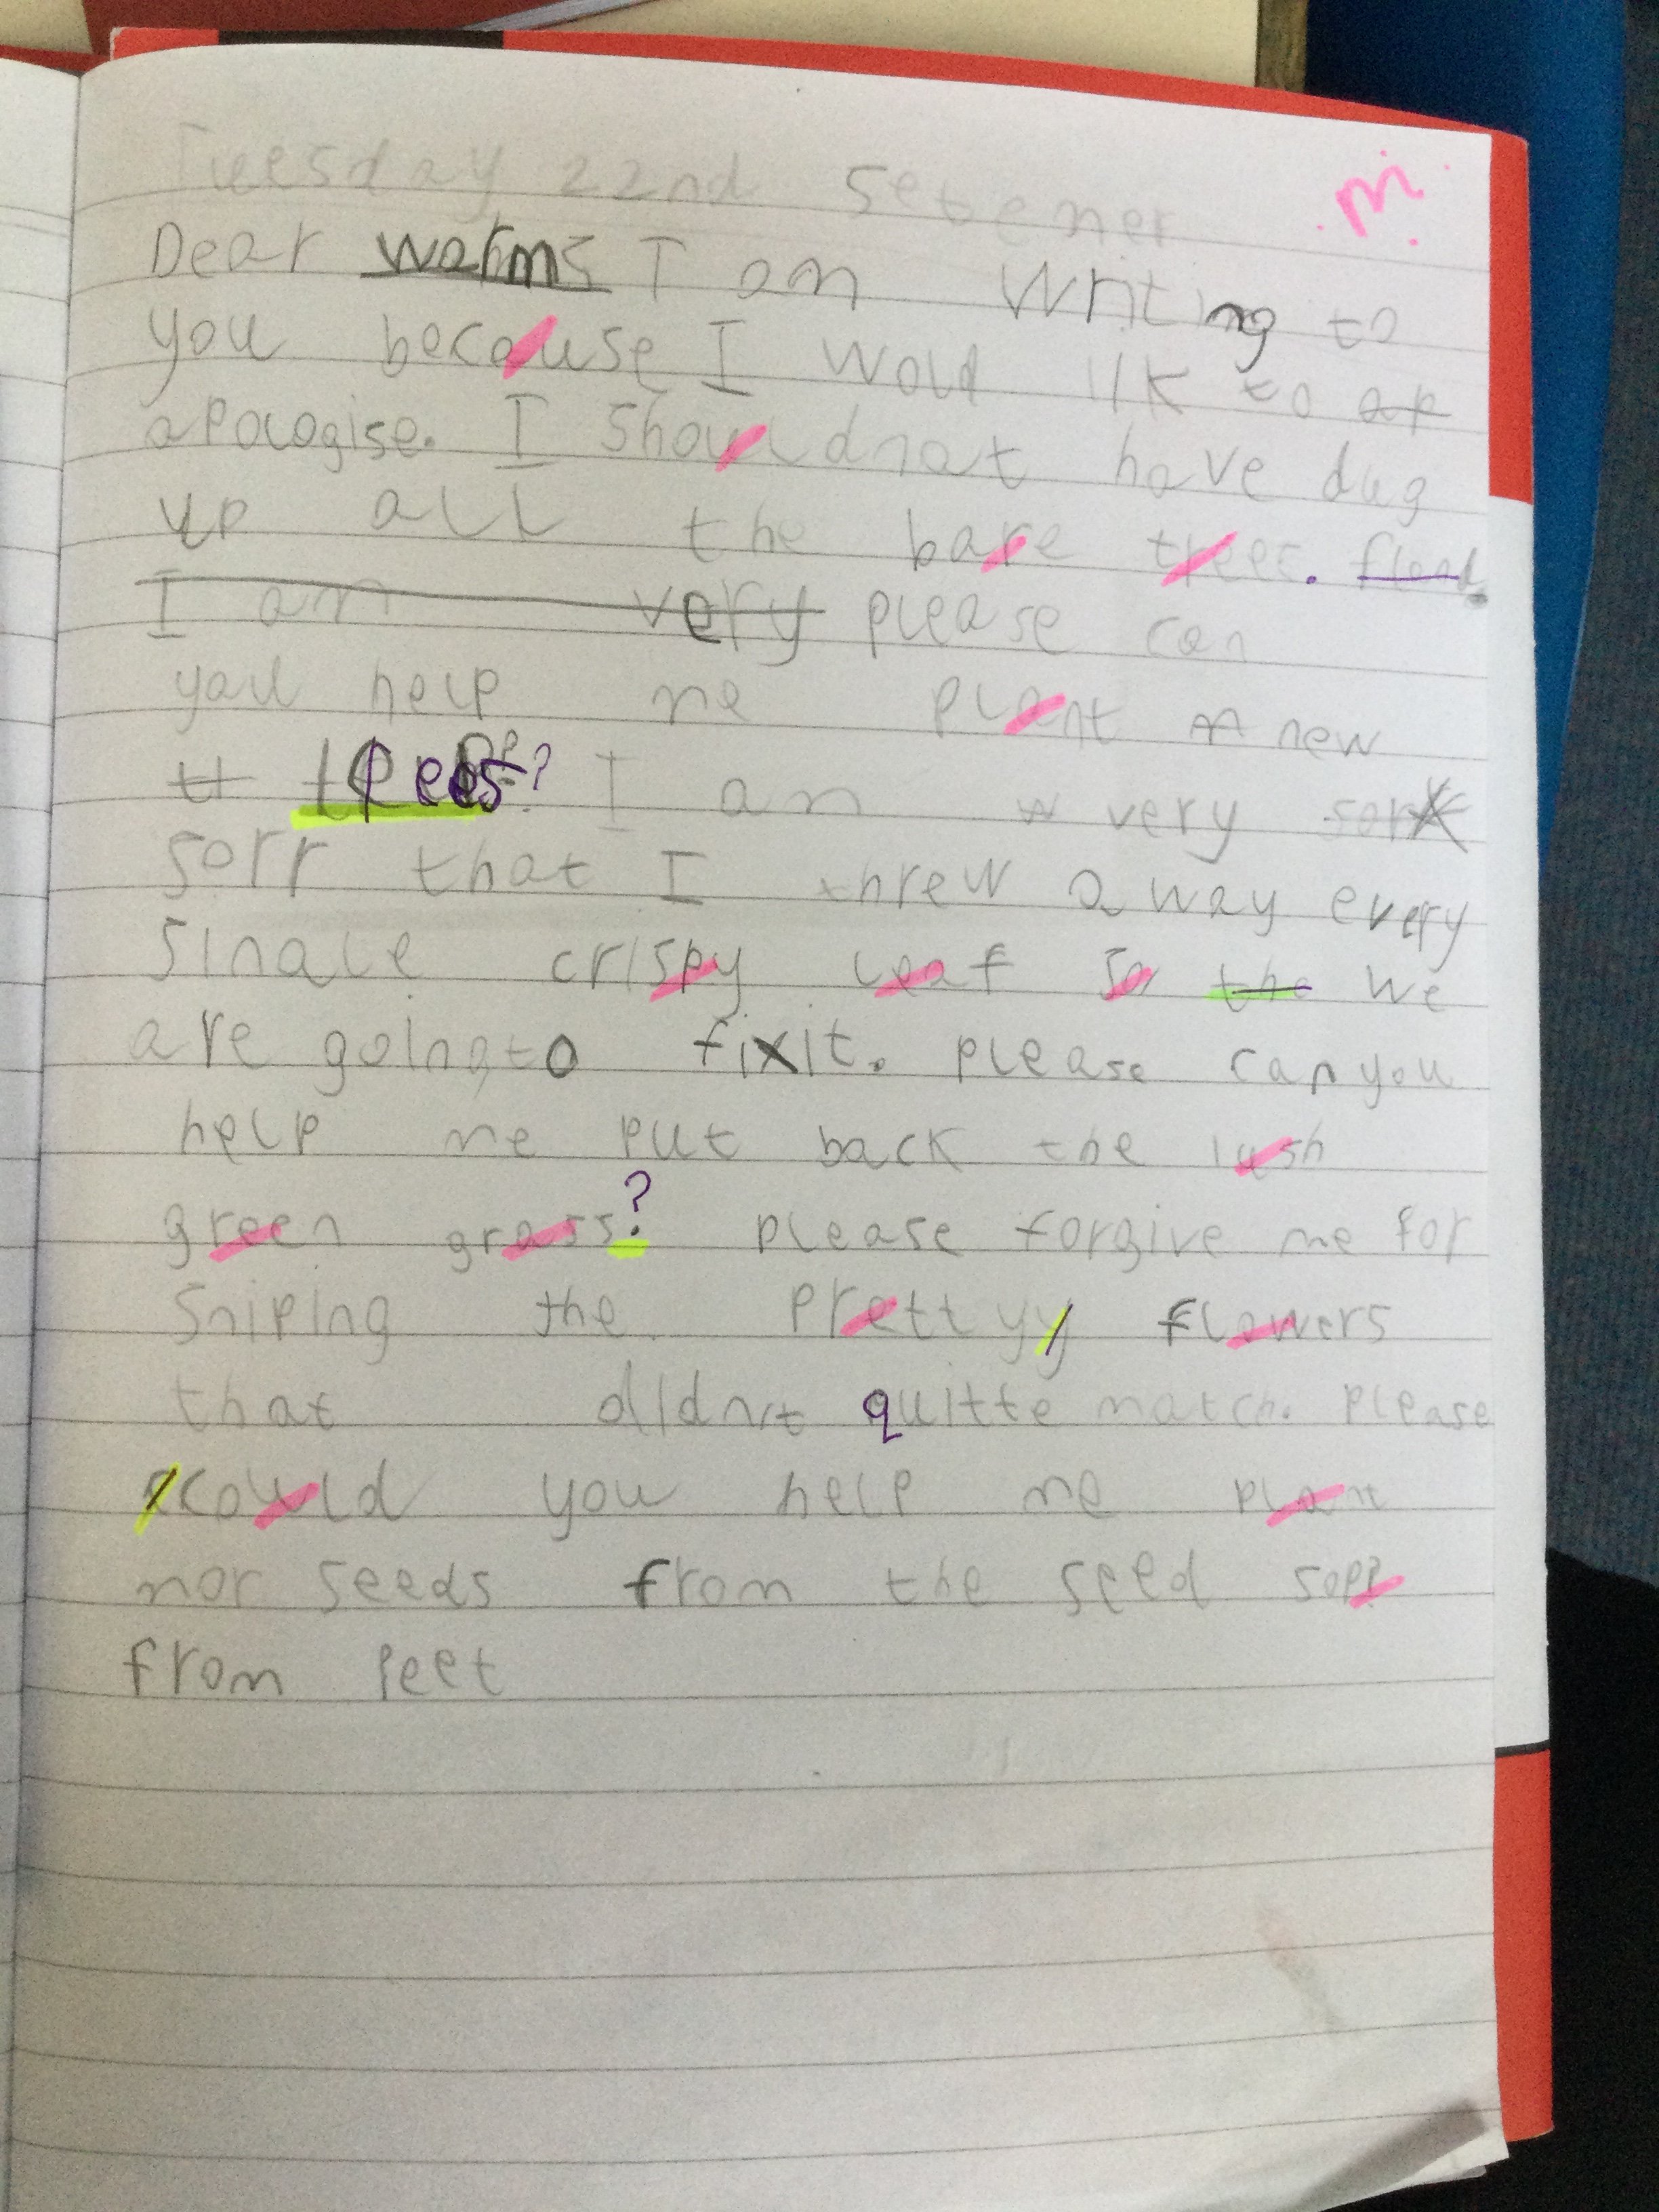 Tuesday 22nd Setemer
Dear worms I am writing to
you because I would lik to ap
apologise. I should not have dug
up all the bare trees.
I am very please can
you help me plant new
tt trees? I am w very
sorr that I threw away every
sinale crispy leaf so the we
are going to fix it. please can you
help me put back the lush
green grass? please forgive me for
sniping the prettyy flowers
that didn't quitte match. please
could you help me plant
mor seeds from the seed
from Peet